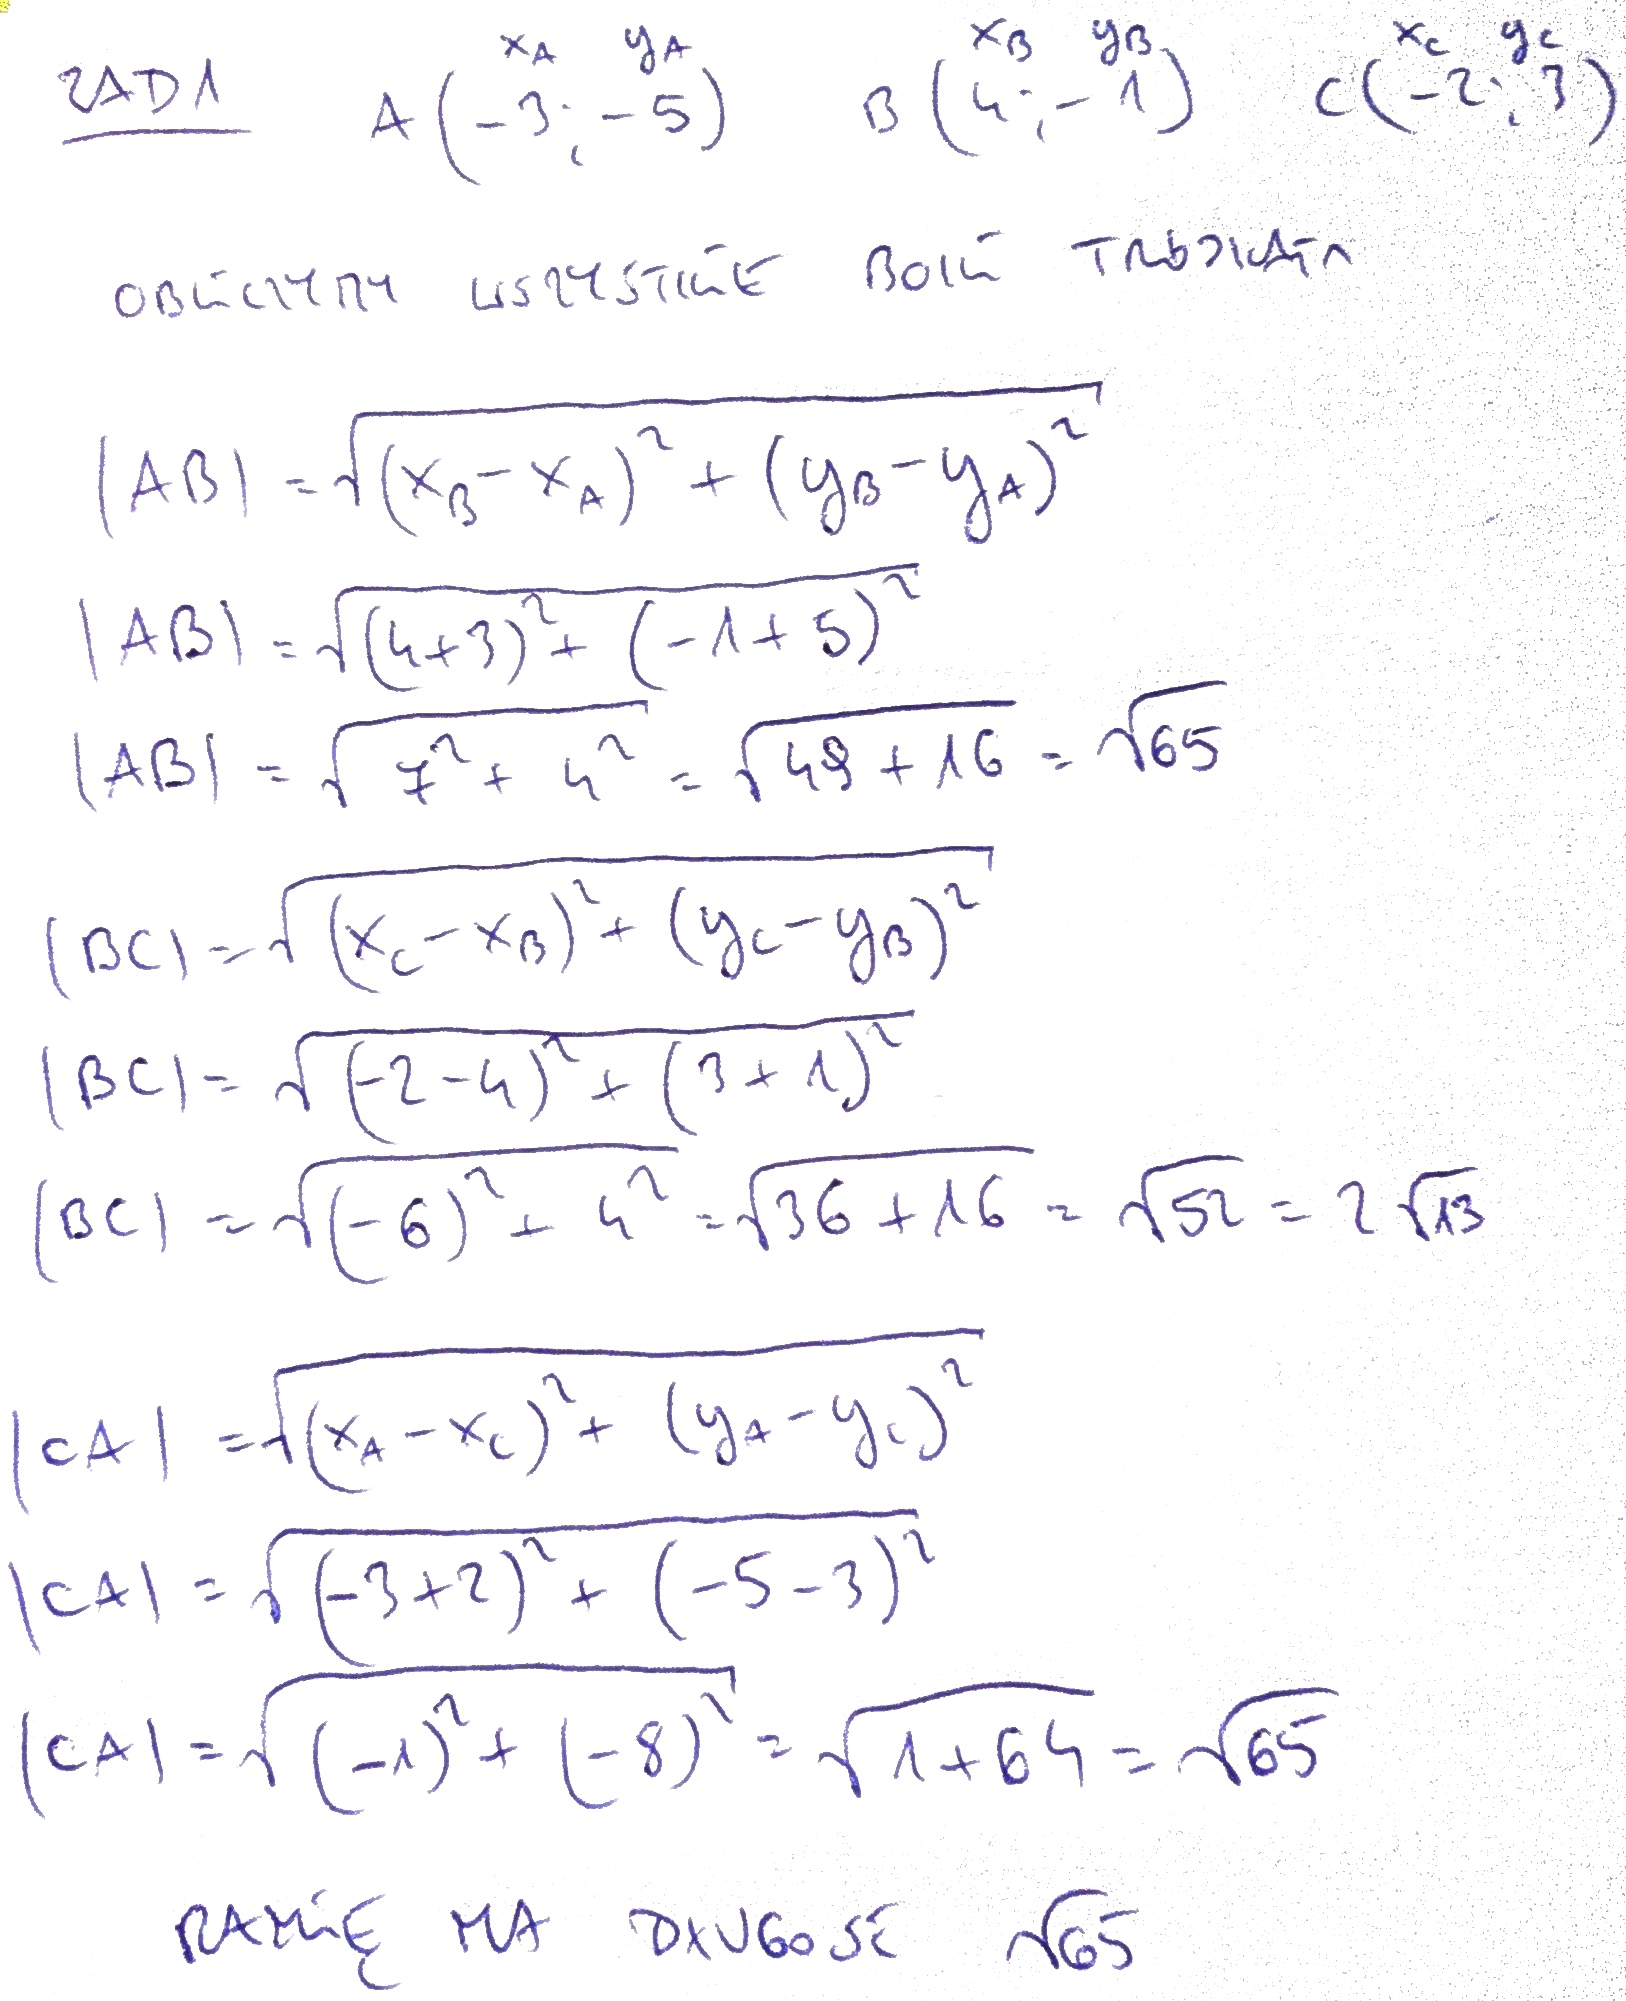 ZAD1 A(-3; -5) B(4; -1) C(-2; 3)
x_A y_A x_B y_B x_C y_C
OBLICZYMY WSZYSTKIE BOKI TRÓJKĄTA
|AB| = √((x_B - x_A)² + (y_B - y_A)²)
|AB| = √((4+3)² + (-1+5)²)
|AB| = √(7² + 4²) = √(49 + 16) = √65
|BC| = √((x_C - x_B)² + (y_C - y_B)²)
|BC| = √((-2-4)² + (3+1)²)
|BC| = √((-6)² + 4²) = √(36 + 16) = √52 = 2√13
|CA| = √((x_A - x_C)² + (y_A - y_C)²)
|CA| = √((-3+2)² + (-5-3)²)
|CA| = √((-1)² + (-8)²) = √(1+64) = √65
RAMIĘ MA DŁUGOŚĆ √65